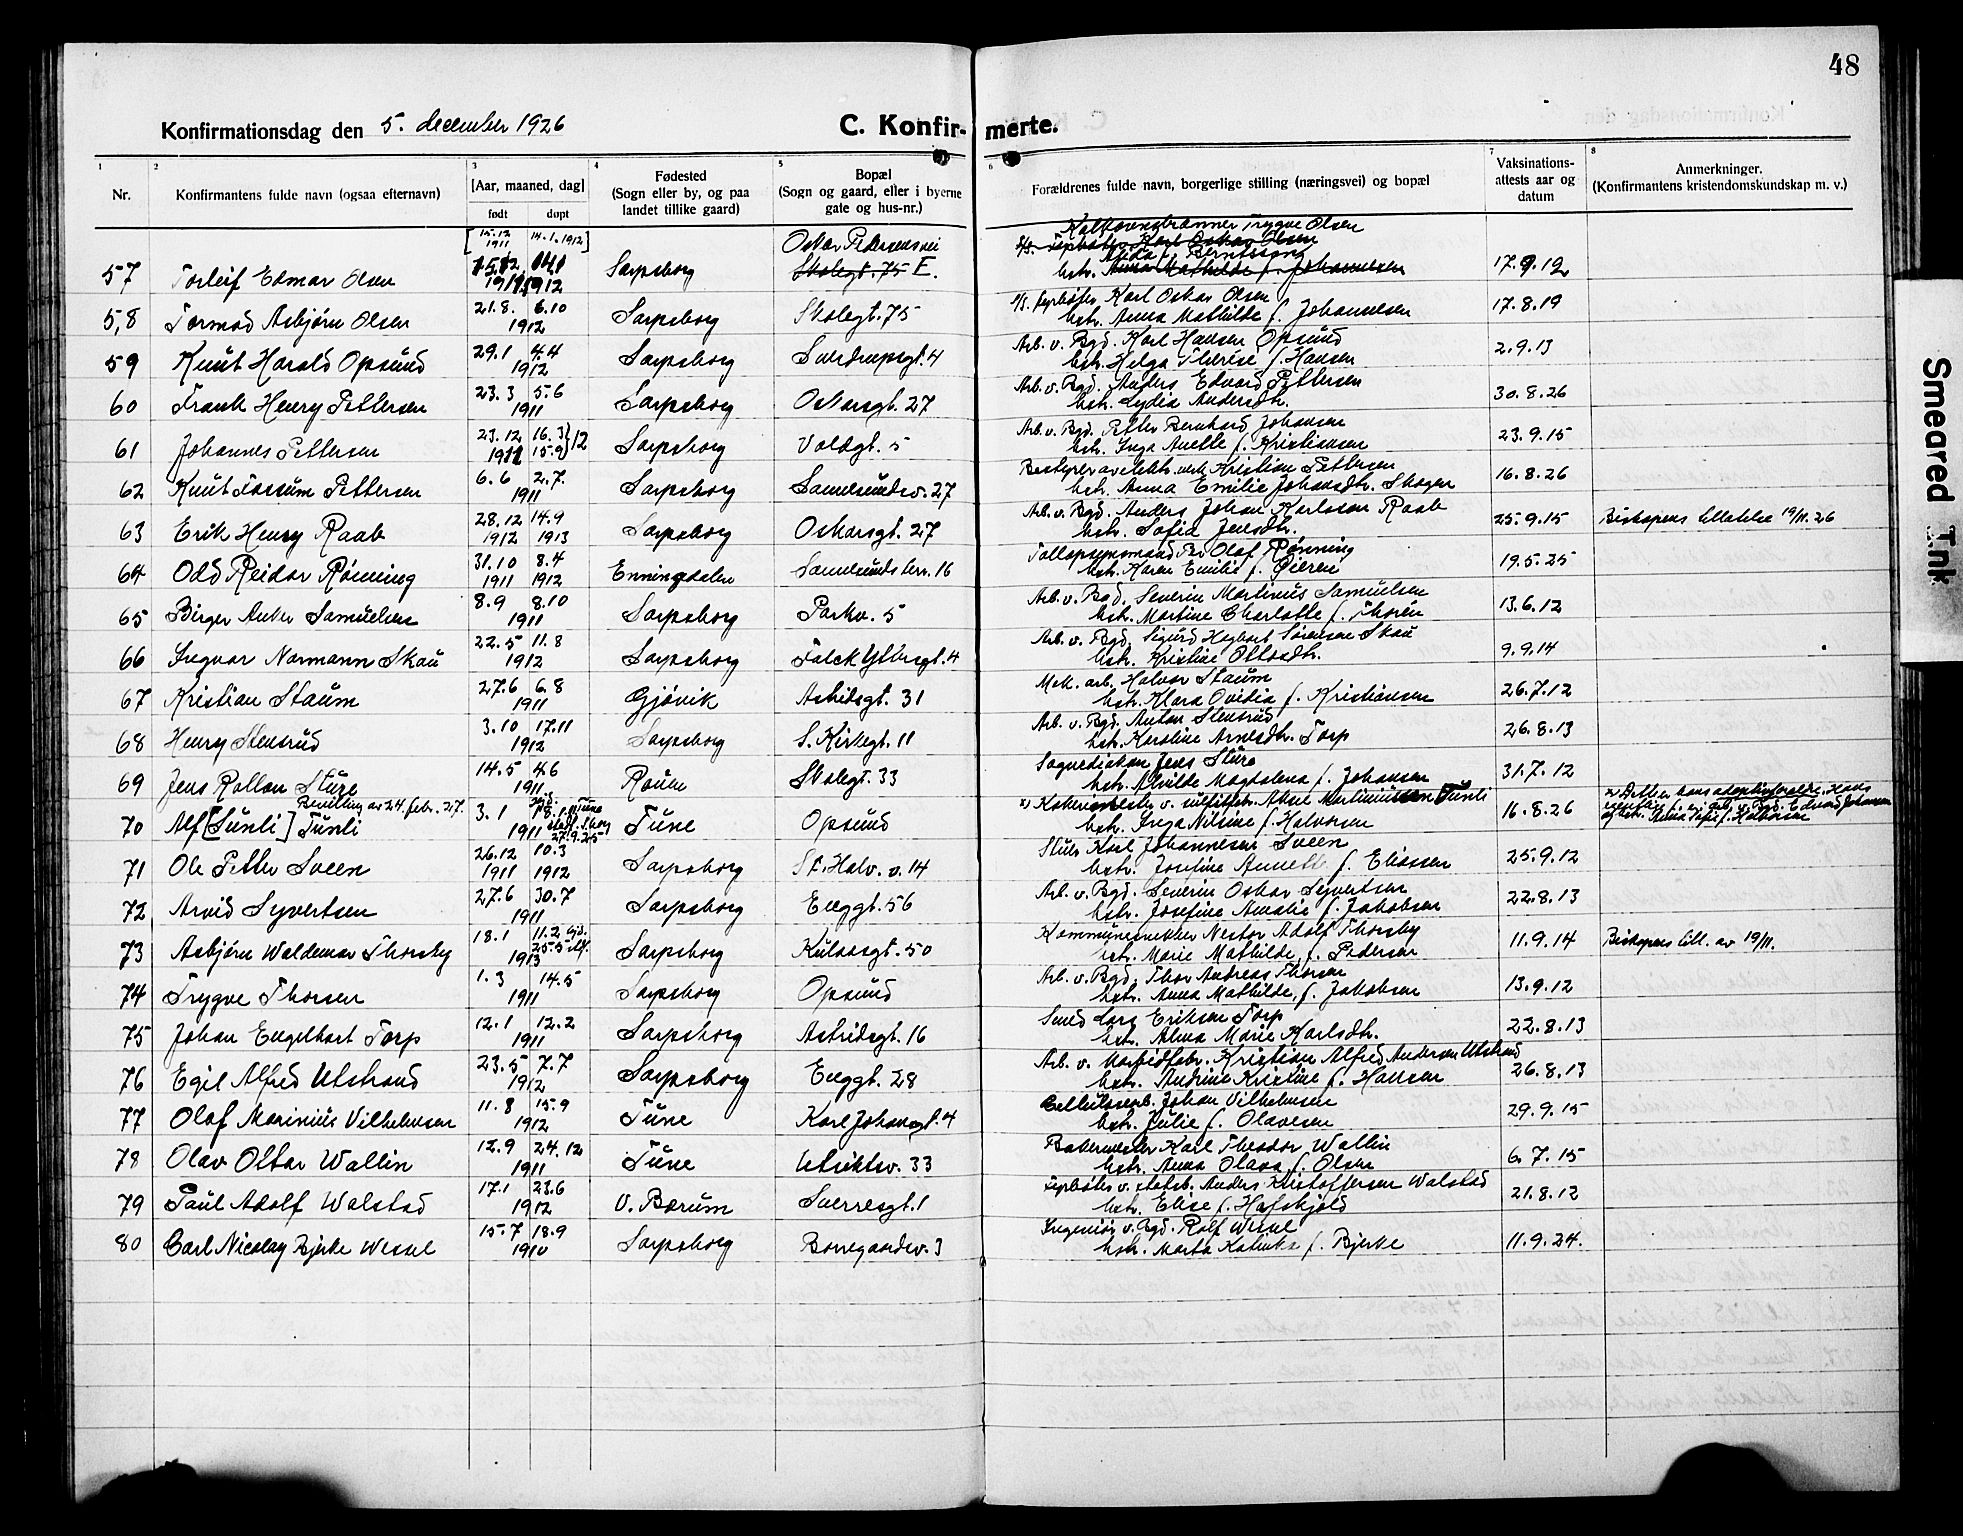 48
Konfirmationsdag den 5. december 1926
C. Konfir- merte.
Smeared Ink
1 2 3 4 5 6 7 8
Nr.
Konfirmantens fulde navn (ogsaa efternavn)
[Aar, maaned, dag]
født døpt
Fødested
(Sogn eller by, og paa
landet tillike gaard)
Bopæl
(Sogn og gaard, eller i byerne
gate og hus-nr.)
Forældrenes fulde navn, borgerlige stilling (næringsvei) og bopæl
Vaksinations-
attests aar og
datum
Anmerkninger.
(Konfirmantens kristendomskundskap m. v.)
[15.12 1911 14.1.1912] Oskar Pedersensvei Trygve Olsen
Karl Oskar Olsen
57 Torleif Edmar Olsen 15.12 14.1 1911 1912 Sarpsborg Skolegt. 75 E. hstr. Anna Mathilde f. Johannesen 17.9.12
58 Tormod Asbjørn Olsen 21.8. 6.10 Sarpsborg Skolegt. 75 Karl Oskar Olsen 17.8.19
1912 hstr. Anna Mathilde f. Johannesen
59 Knut Harald Opsund 29.1 4.4 Sarpsborg Sverdrupsgt. 4 Arb. v. Bgd. Karl Hansen Opsund 2.9.13
1912 hstr. Helga Therese f. Hansen
60 Frank Henry Pettersen 23.3 5.6 Sarpsborg Oskarsgt. 27 Arb. v. Bgd. Anders Edvard Pettersen 30.8.26
1911 hstr. Lydia Andersdtr.
61 Johannes Pettersen 23.12 16.3 Sarpsborg Voldgt. 5 Arb. v. Bgd. Petter Bernhard Johansen 23.9.15
1911 15.9 }12 hstr. Inga Anette f. Kristiansen
62 Knut Fossum Pettersen 6.6 2.7. Sarpsborg Sandesundsv. 27 Bestyrer av elektr. verk Kristian Pettersen 16.8.26
1911 hstr. Anna Emilie Johansdtr. Skogen
63 Erik Henry Raab 28.12 14.9 Sarpsborg Oskarsgt. 27 Arb. v. Bgd. Anders Johan Karlsson Raab 25.9.15 Biskopens tillatelse 19/11.26
1912 1913 hstr. Sofia Jensdtr.
64 Odd Reidar Rønning 31.10 8.4 Enningdalen Sandesunds terr. 16 Tollopsynsmand Per Olaf Rønning 19.5.25
1911 1912 hstr. Karen Emilie f. Øieren
65 Birger Anker Samuelsen 8.9 8.10 Sarpsborg Parkv. 5 Arb. v. Bgd. Severin Martinius Samuelsen 13.6.12
1911 hstr. Martine Charlotte f. Thorén
66 Ingvar Normann Skau 22.5 11.8 Sarpsborg Falck Ytbergt. 4 Arb. v. Bgd. Sigurd Hagbart Sørensen Skau 9.9.14
1912 hstr. Kristine Ottosdtr.
67 Kristian Staum 27.6 6.8 Gjøvik Astridsgt. 31 Mek. arb. Halvor Staum 26.7.12
1911 hstr. Klara Ovidia f. Kristiansen
68 Henry Stensrud 3.10 17.11 Sarpsborg S. Kirkegt. 11 Arb. v. Bgd. Anton Stensrud 26.8.13
1912 hstr. Karoline Arnesdtr. Torp
69 Jens Rollon Sture 14.5 4.6 Rouen Skolegt. 33 Sognediakon Jens Sture 31.7.12
1911 hstr. Alvilde Magdalena f. Johansen
Bevilling av 24. febr. 27.
70 Alf [Sunli] Tunli 3.1 1911 Tune Opsund x) Aksel Martiniussen Tunli 16.8.26
27.9.25 hstr. Inga Nilsine f. Halvorsen
71 Ole Petter Sveen 26.12 10.3 Sarpsborg St. Halv. v. 14 Karl Johannesen Sveen 25.9.12
1911 1912 hstr. Josefine Annette f. Eliassen
72 Arvid Syvertsen 27.6 30.7 Sarpsborg Enggt. 56 Arb. v. Bgd. Severin Oskar Syvertsen 22.8.13
1911 hstr. Josefine Amalie f. Jakobsen
73 Asbjørn Waldemar Thorsby 18.1 11.2 Gjd. Sarpsborg Kulaasgt. 50 Kommunesnekker Nestor Adolf Thorsby 11.9.14 Biskopens till. av 19/11.
1913 25.5 hstr. Marie Mathilde f. Pedersen
74 Trygve Thorsen 1.3 14.5 Sarpsborg Opsund Arb. v. Bgd. Thor Andreas Thorsen 13.9.12
1911 hstr. Anna Mathilde, f. Jakobsen
75 Johan Engelhart Torp 12.1 12.2 Sarpsborg Astridsgt. 16 Smed Lars Eriksen Torp 22.8.13
1911 hstr. Alma Marie Karlsdtr.
76 Egil Alfred Ulstrand 23.5 7.7 Sarpsborg Enggt. 28 Arb. v. karbidfabr. Kristian Alfred Andersen Ulstrand 26.8.13
1912 hstr. Andrine Kristine f. Hansen
77 Olaf Marinius Vilhelmsen 11.8 15.9 Tune Karl Johansgt. 4 Cellulosearb. Johan Vilhelmsen 29.9.15
1912 hstr. Julie f. Olavesen
78 Olav Ottar Wallin 12.9 24.12 Tune Utsiktsv. 33 Bakermester Karl Theodor Wallin 6.7.15
1911 hstr. Anna Olava f. Olsen
79 Paul Adolf Walstad 17.1 23.6 V. Bærum Sverresgt. 1 Fyrbøter v. statsb. Anders Kristoffersen Walstad 21.8.12
1912 hstr. Elise f. Hafskjold
80 Carl Nicolay Bjerke Wessel 15.7 18.9 Sarpsborg Borregaardsv. 3 Ingeniør v. Bgd. Rolf Wessel 11.9.24.
1910 hstr. Marta Katinka f. Bjerke